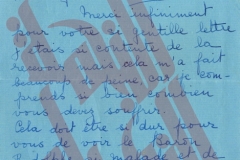 Merci infiniment
pour votre si gentille lettre
j'étais si contente de la
recevoir mais cela m'a fait
beaucoup de peine, car je com-
prends si bien combien
vous devez souffrir.
Cela doit être si dur pour
vous de voir le Baron
malade et de